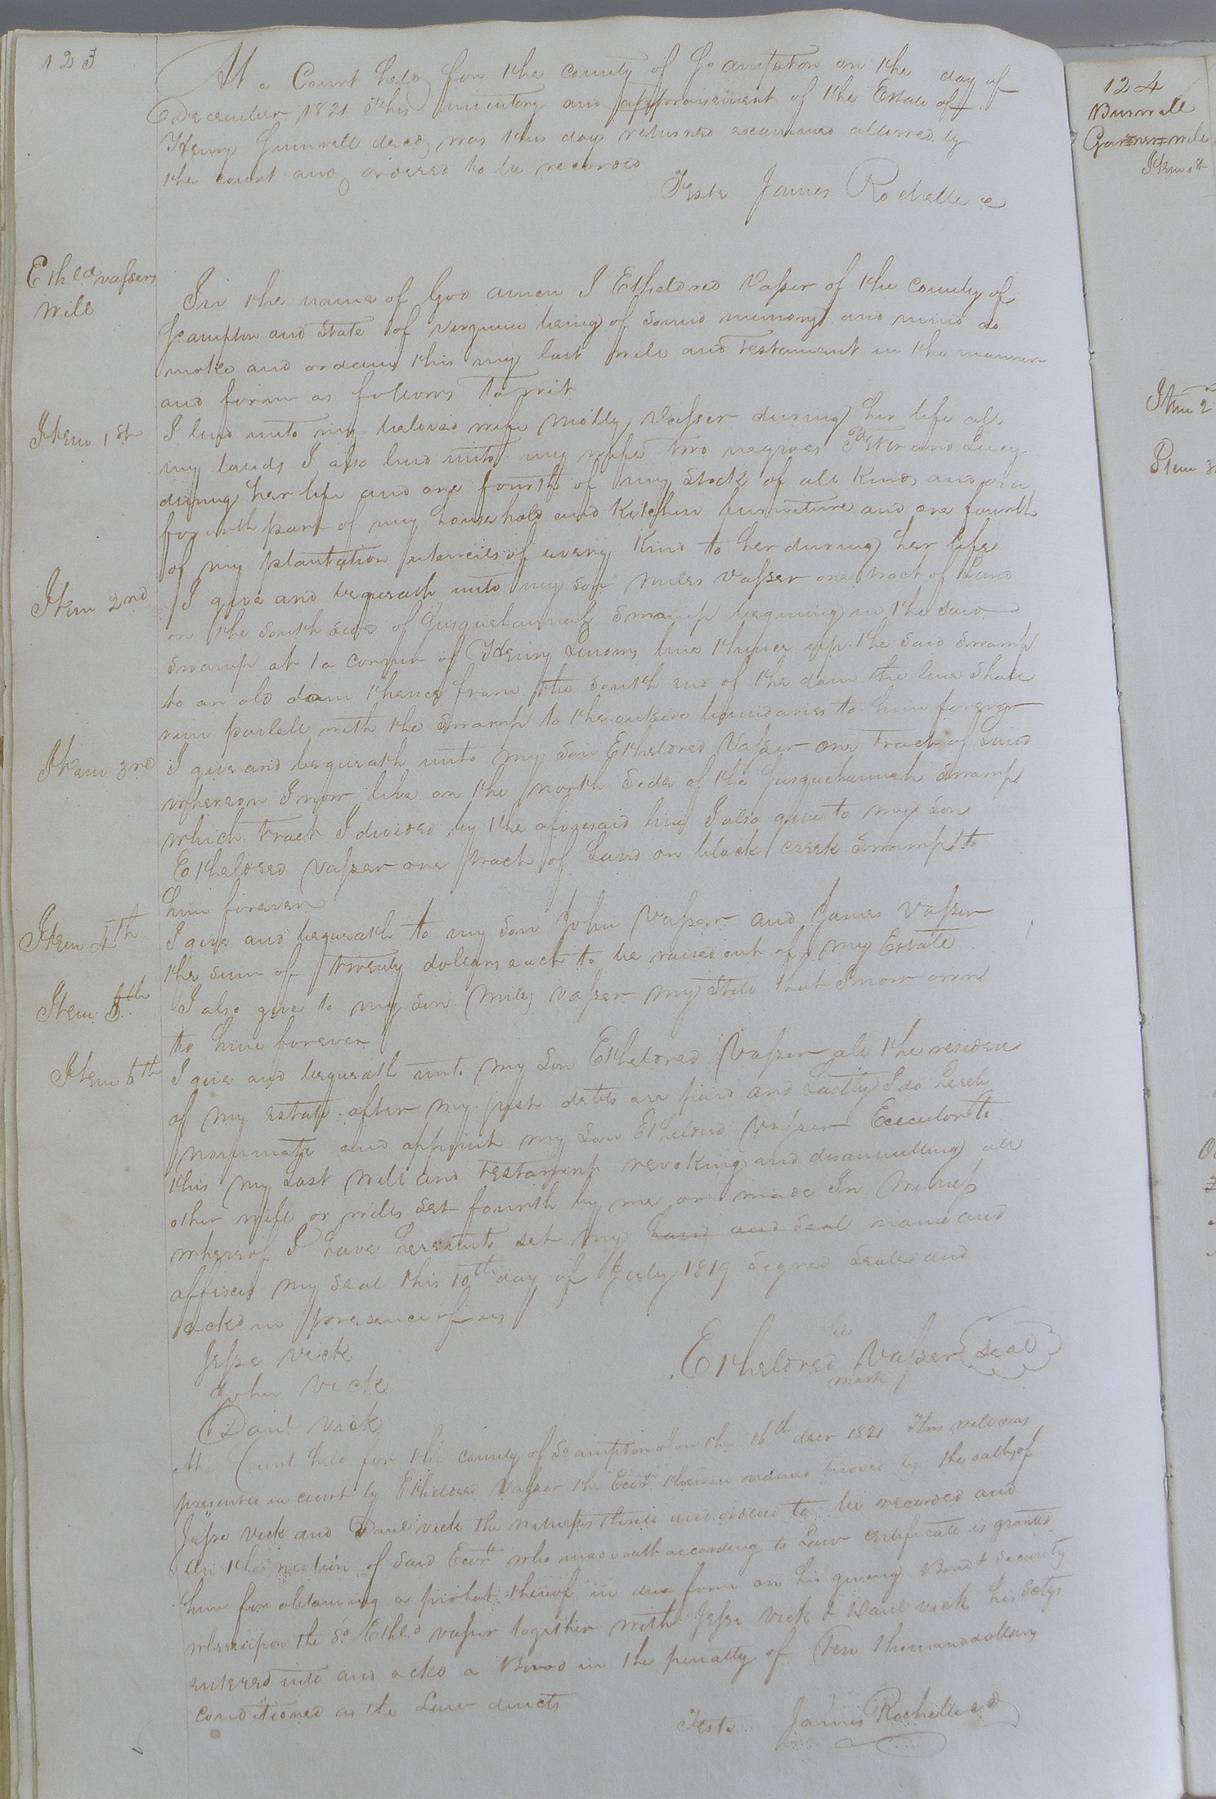 123
At a Court held for the county of Soampton on the day of
December 1821 This inventory and appraisement of the Estate of
Henry Gunnell decd, was this day returned examined allowed by
the court and ordered to be recorded
Teste James Rochelle
Etheld Vasser
Will
In the name of God amen I Etheldred Vasser of the County of
Soampton and State of Virginia being of sound memory and mind do
make and ordain this my last will and Testament in the manner
and form as follows to wit
Item 1st
I lend unto my beloved wife Molly Vasser during her life all
my lands I also lend unto my wife two negroes Peter and Lucy
during her life and one fourth of my Stock of all kinds and one
fourth part of my household and Kitchen furniture and one fourth
of my plantation utencils of every kind to her during her life
Item 2nd
I give and bequeath unto my son Miles Vasser one tract of Land
on the South side of Gusquehannah Swamp begining in the said
Swamp at a corner of Henry line thence up the said Swamp
to an old dam thence from the South end of the dam the line Shall
run parlell with the Swamp to the outside boundaries to him forever
Item 3rd
I give and bequeath unto my Son Etheldred Vasser one tract of land
whereon I now live on the North Side of the Gusquehannah Swamp
which tract I divided by the aforesaid line I also give to my Son
Etheldred Vasser one tract of Land on black creek Swamp to
him forever
Item 4th
I give and bequeath to my Son John Vasser and James Vasser
the sum of twenty dollers each to be raised out of my Estate
Item 5th
I also give to my Son Miles Vasser my Still that I now own
to him forever
Item 6th
I give and bequeath unto my Son Etheldred Vasser all the residue
of my estate after my just debts are paid and Lastly I do hereby
nominate and appoint my Son Etheldred Vasser Executor to
this my Last Will and Testament revoking and disannulling all
other will or wills set fourth by me or made In Witness
whereof I have hereunto set my hand and Seal name and
affixed my Seal this 10th day of July 1819 Signed Sealed and
ackd in presence of us
Jesse Vick
John Vick
Danl Vick
his
Etheldred Vasser Seal
mark
At a Court held for the county of Soampton on the 16th decr 1821 This will was
presented in court by Etheldred Vasser the Ecor therein named proved by the oaths of
Jesse Vick and Danl Vick the witnesses thereto and ordered to be recorded and
On the motion of Said Ecor who made oath according to Law certificate is granted
him for obtaining a probat thereof in due form on his giving Bond & Security
whereupon the sd Etheld Vasser together with Jesse Vick & Danl Vick his Setys
entered into and ackd a Bond in the penalty of Ten thousand dollars
conditioned as the Law directs
Teste James Rochelle
124
Burwell
will
Item 1st
Item 2
Item 3